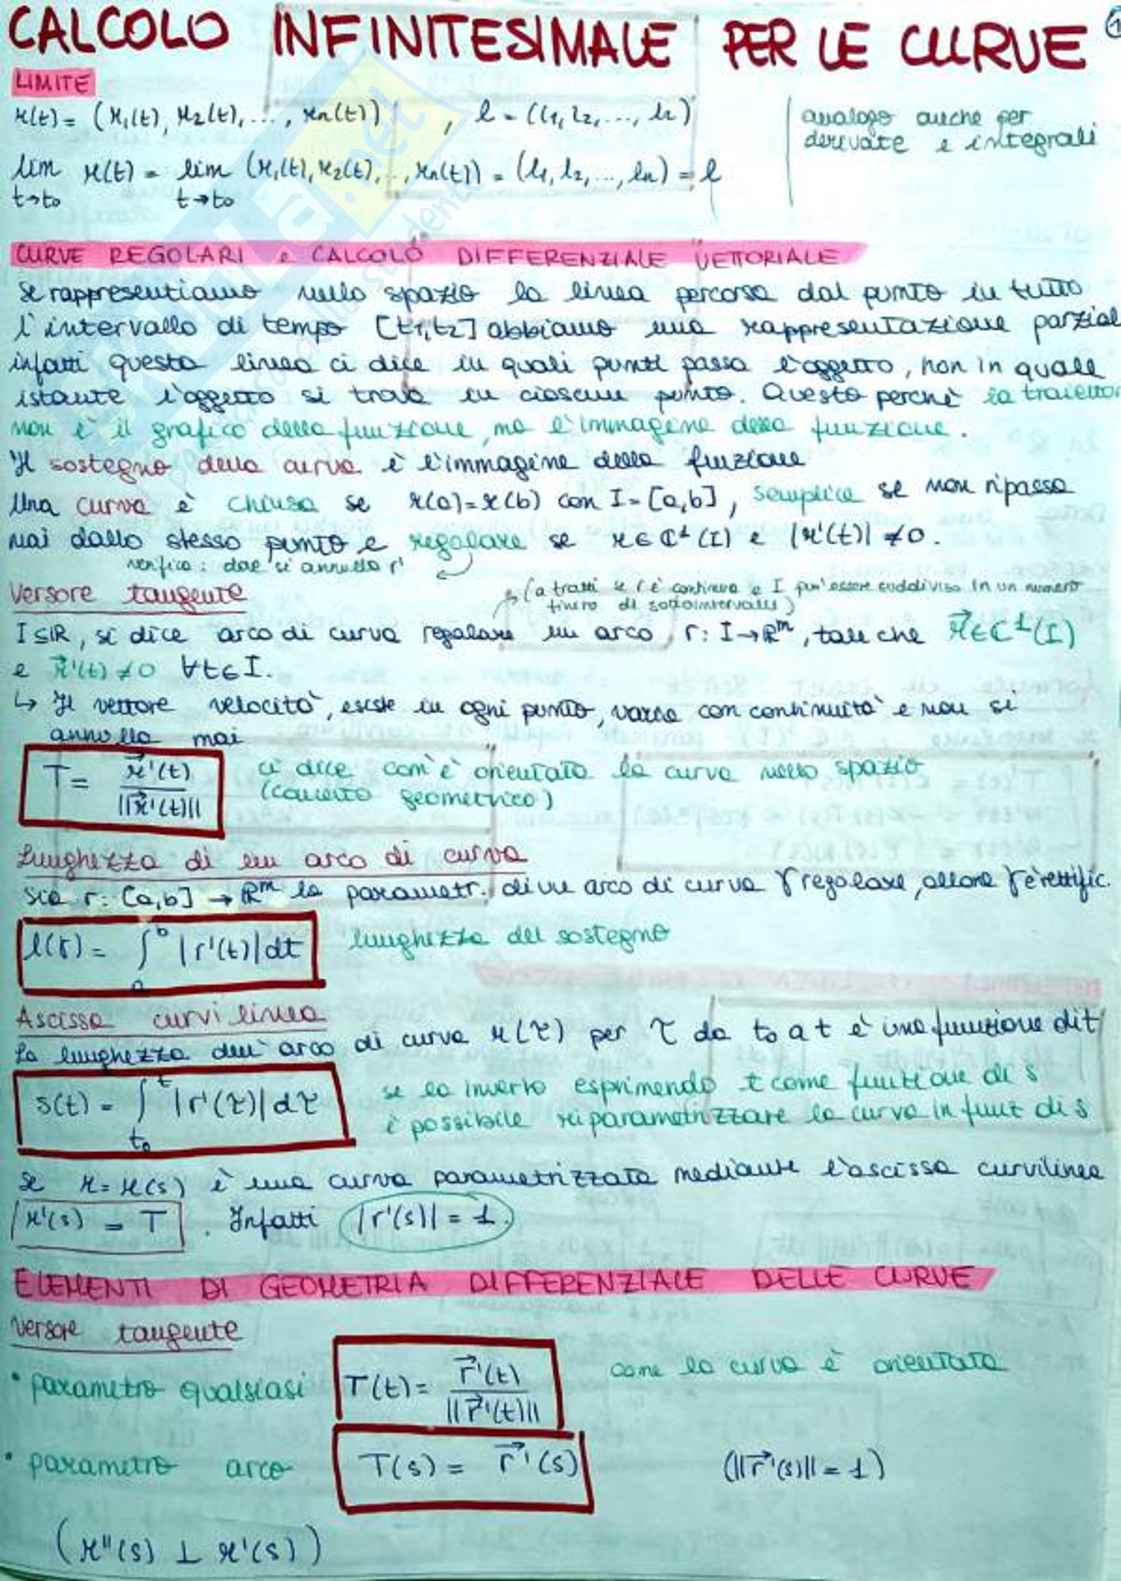 CALCOLO INFINITESIMALE PER LE CURVE 1
LIMITE
r(t) = (r₁(t), r₂(t), ..., rn(t)) , l = (l₁, l₂, ..., ln)
analogo anche per
derivate e integrali
lim r(t) = lim (r₁(t), r₂(t), .., rn(t)) = (l₁, l₂, ..., ln) = l
t→t₀ t→t₀
CURVE REGOLARI e CALCOLO DIFFERENZIALE VETTORIALE
Se rappresentiamo nello spazio la linea percorsa dal punto in tutto
l'intervallo di tempo [t₁,t₂] abbiamo una rappresentazione parzial
infatti questa linea ci dice in quali punti passa l'oggetto, non in quale
istante l'oggetto si trova in ciascun punto. Questo perchè la traiettor
non è il grafico della funzione, ma l'immagine della funzione.
Il sostegno della curva è l'immagine della funzione
Una curva è chiusa se r(a)=r(b) con I=[a,b], semplice se non ripassa
mai dallo stesso punto e regolare se r∈C¹(I) e |r'(t)| ≠0.
verifica: dove si annulla r'
Versore tangente
(a tratti se r è continua e I può essere suddiviso in un numero
finito di sottointervalli)
I⊆R, si dice arco di curva regolare un arco r: I→Rᵐ, tale che r⃗∈C¹(I)
e r⃗'(t) ≠0 ∀t∈I.
↳ Il vettore velocità, esiste in ogni punto, varia con continuità e non si
annulla mai
T = r⃗'(t) / ||r⃗'(t)||
ci dice com'è orientata la curva nello spazio
(concetto geometrico)
Lunghezza di un arco di curva
Sia r: [a,b] → Rᵐ la parametr. di un arco di curva γ regolare, allora γ è rettific.
l(γ) = ∫ₐᵇ |r'(t)| dt lunghezza del sostegno
Ascissa curvilinea
La lunghezza dell'arco di curva r(τ) per τ da t₀ a t è una funzione di t
s(t) = ∫ₜ₀ᵗ |r'(τ)| dτ
se la inverto esprimendo t come funzione di s
è possibile riparametrizzare la curva in funz di s
Se r=r(s) è una curva parametrizzata mediante l'ascissa curvilinea
r'(s) = T . Infatti |r'(s)| = 1.
ELEMENTI DI GEOMETRIA DIFFERENZIALE DELLE CURVE
Versore tangente
• parametro qualsiasi T(t) = r⃗'(t) / ||r⃗'(t)|| come la curva è orientata
• parametro arco T(s) = r⃗'(s) (||r⃗'(s)|| = 1)
(r''(s) ⊥ r'(s))